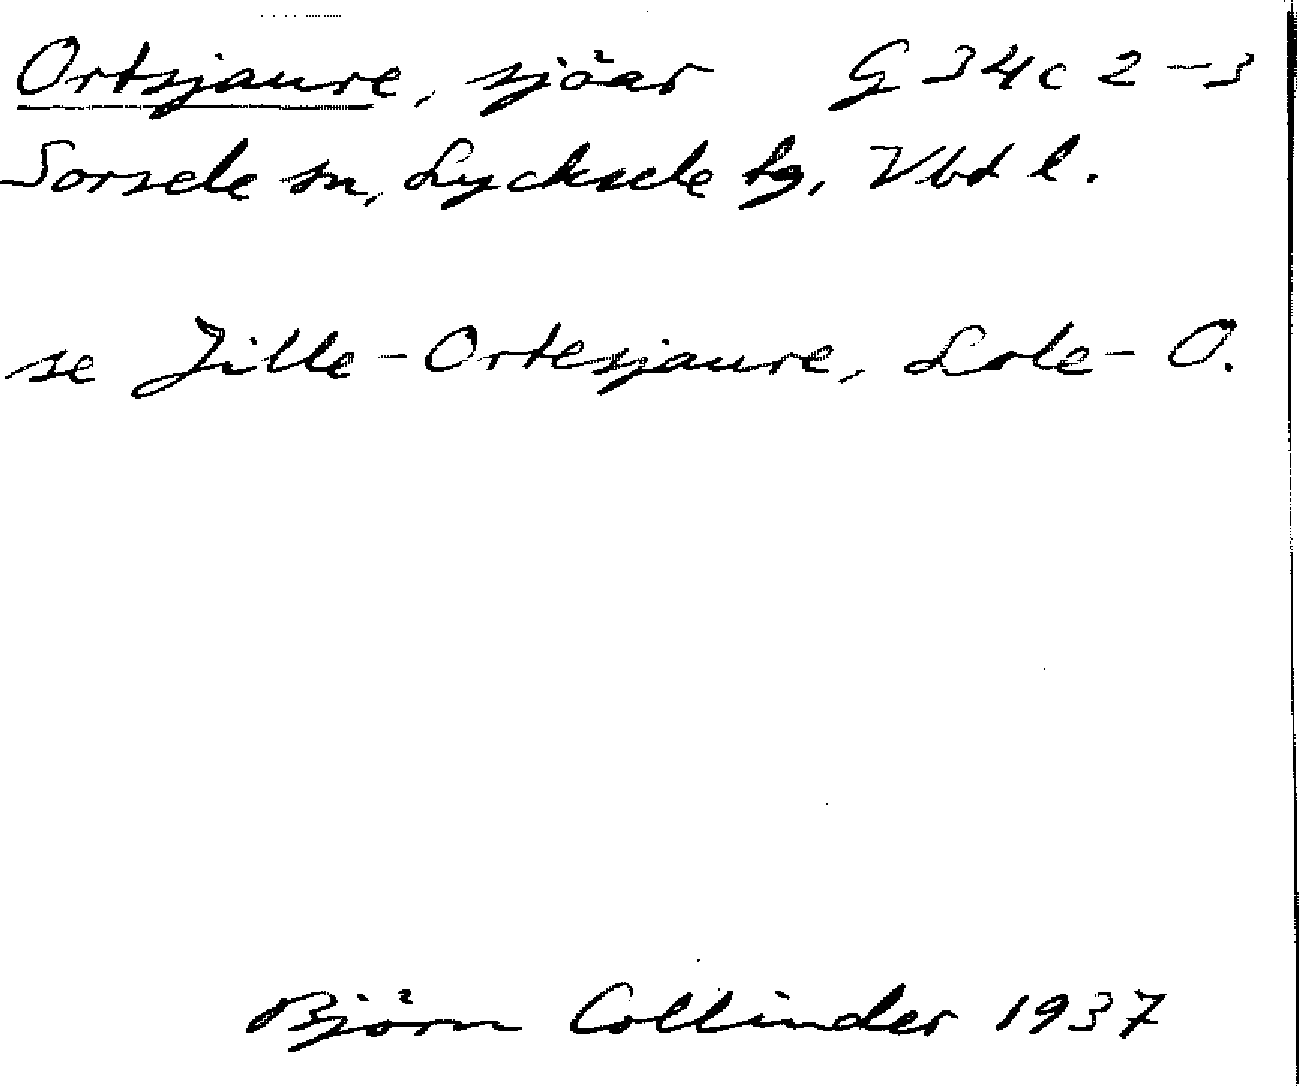 Ortsjaure, sjöar G 34c 2-3
Sorsele sn, Lycksele tg, Vbt l.
se Jille-Ortesjaure, Lole- O.
Björn Collinder 1937